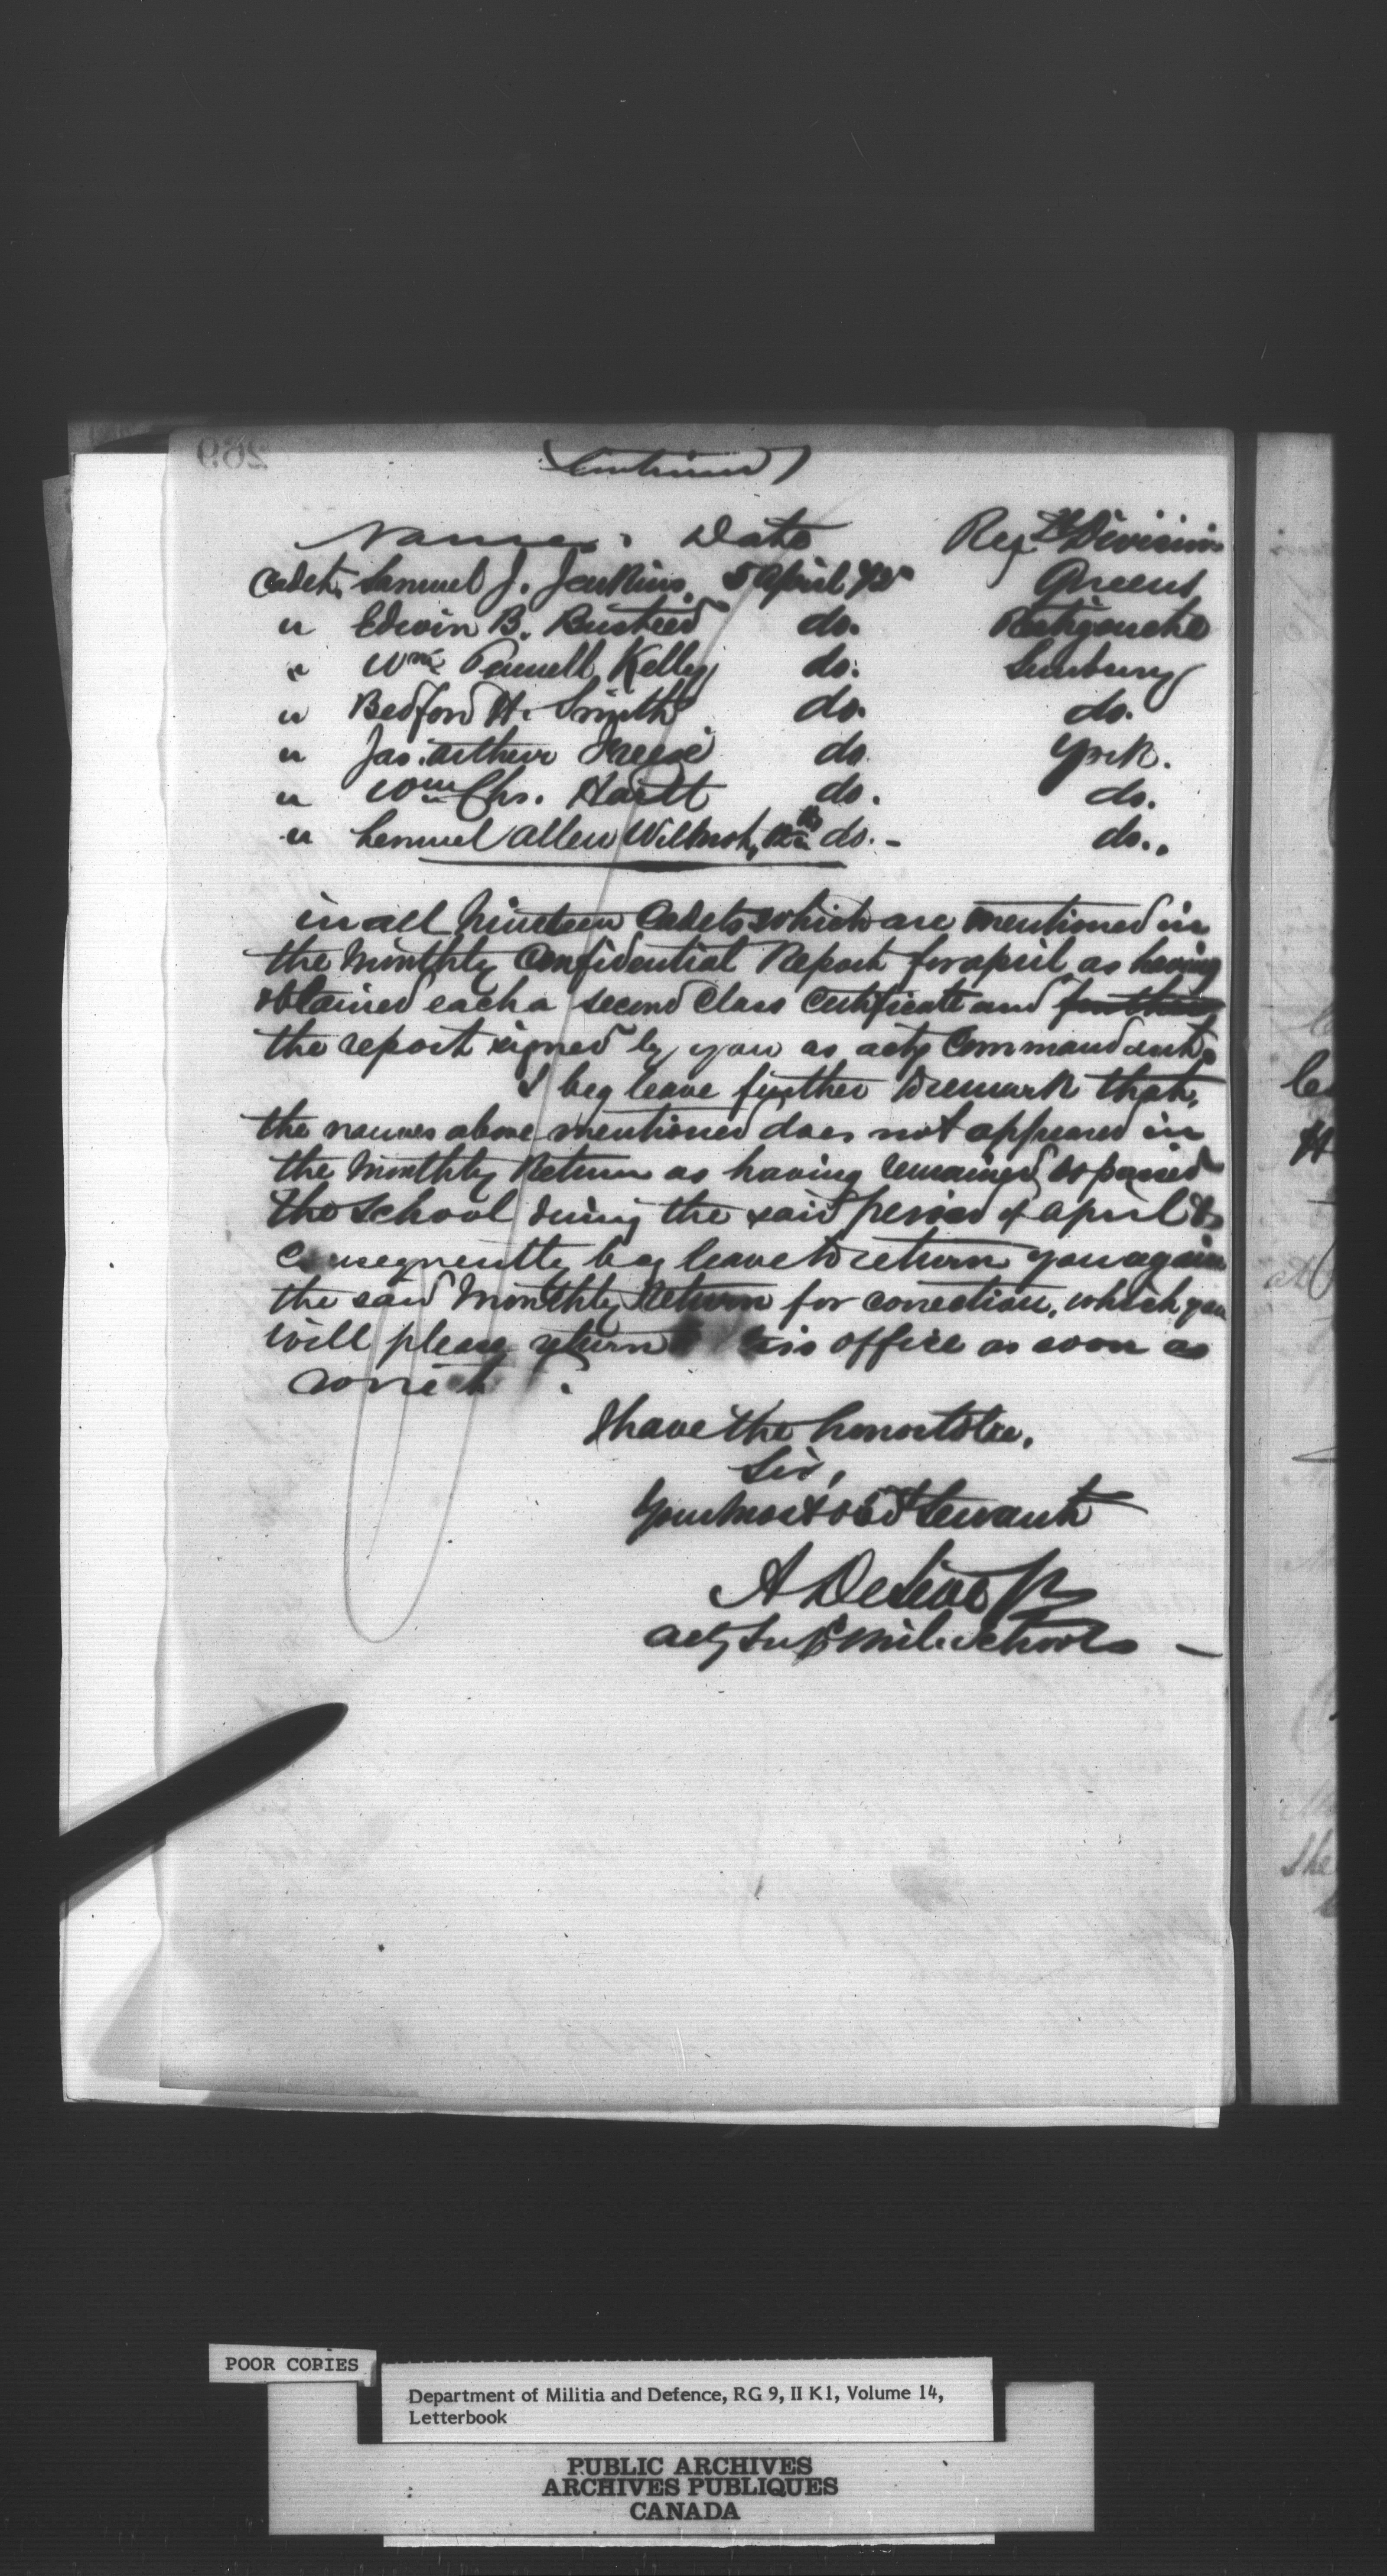 269
(Continued)
Names. Date Reg.tl Division
Cadet Samuel J. Jenkins. 5 April 72 Queens
" Edwin B. Busteed do. Restigouche
" Wm Pannell Kelly do. Sunbury
" Bedford H. Smith do. do.
" Jas. Arthur do. York.
" Wm Chs. Hartt do. do.
" Lemuel Allen Wilmot, do. - do.
in all Nineteen Cadets which are mentioned in
the Monthly Confidential Report for april as having
obtained each a second Class Certificate and further
the report signed by you as actg Commandant.
I beg leave further to remark that,
the names above mentioned does not appeared in
the Monthly Return as having remained or passed
the School during the said period of april &
consequently beg leave to return you again
the said Monthly Return for correction, which you
will please return to this office as soon as
correct.
I have the honor to be,
Sir,
Your most obdt Servant
A
actg Supt Mil. Schools -
POOR COPIES
Department of Militia and Defence, RG 9, II K1, Volume 14,
Letterbook
PUBLIC ARCHIVES
ARCHIVES PUBLIQUES
CANADA